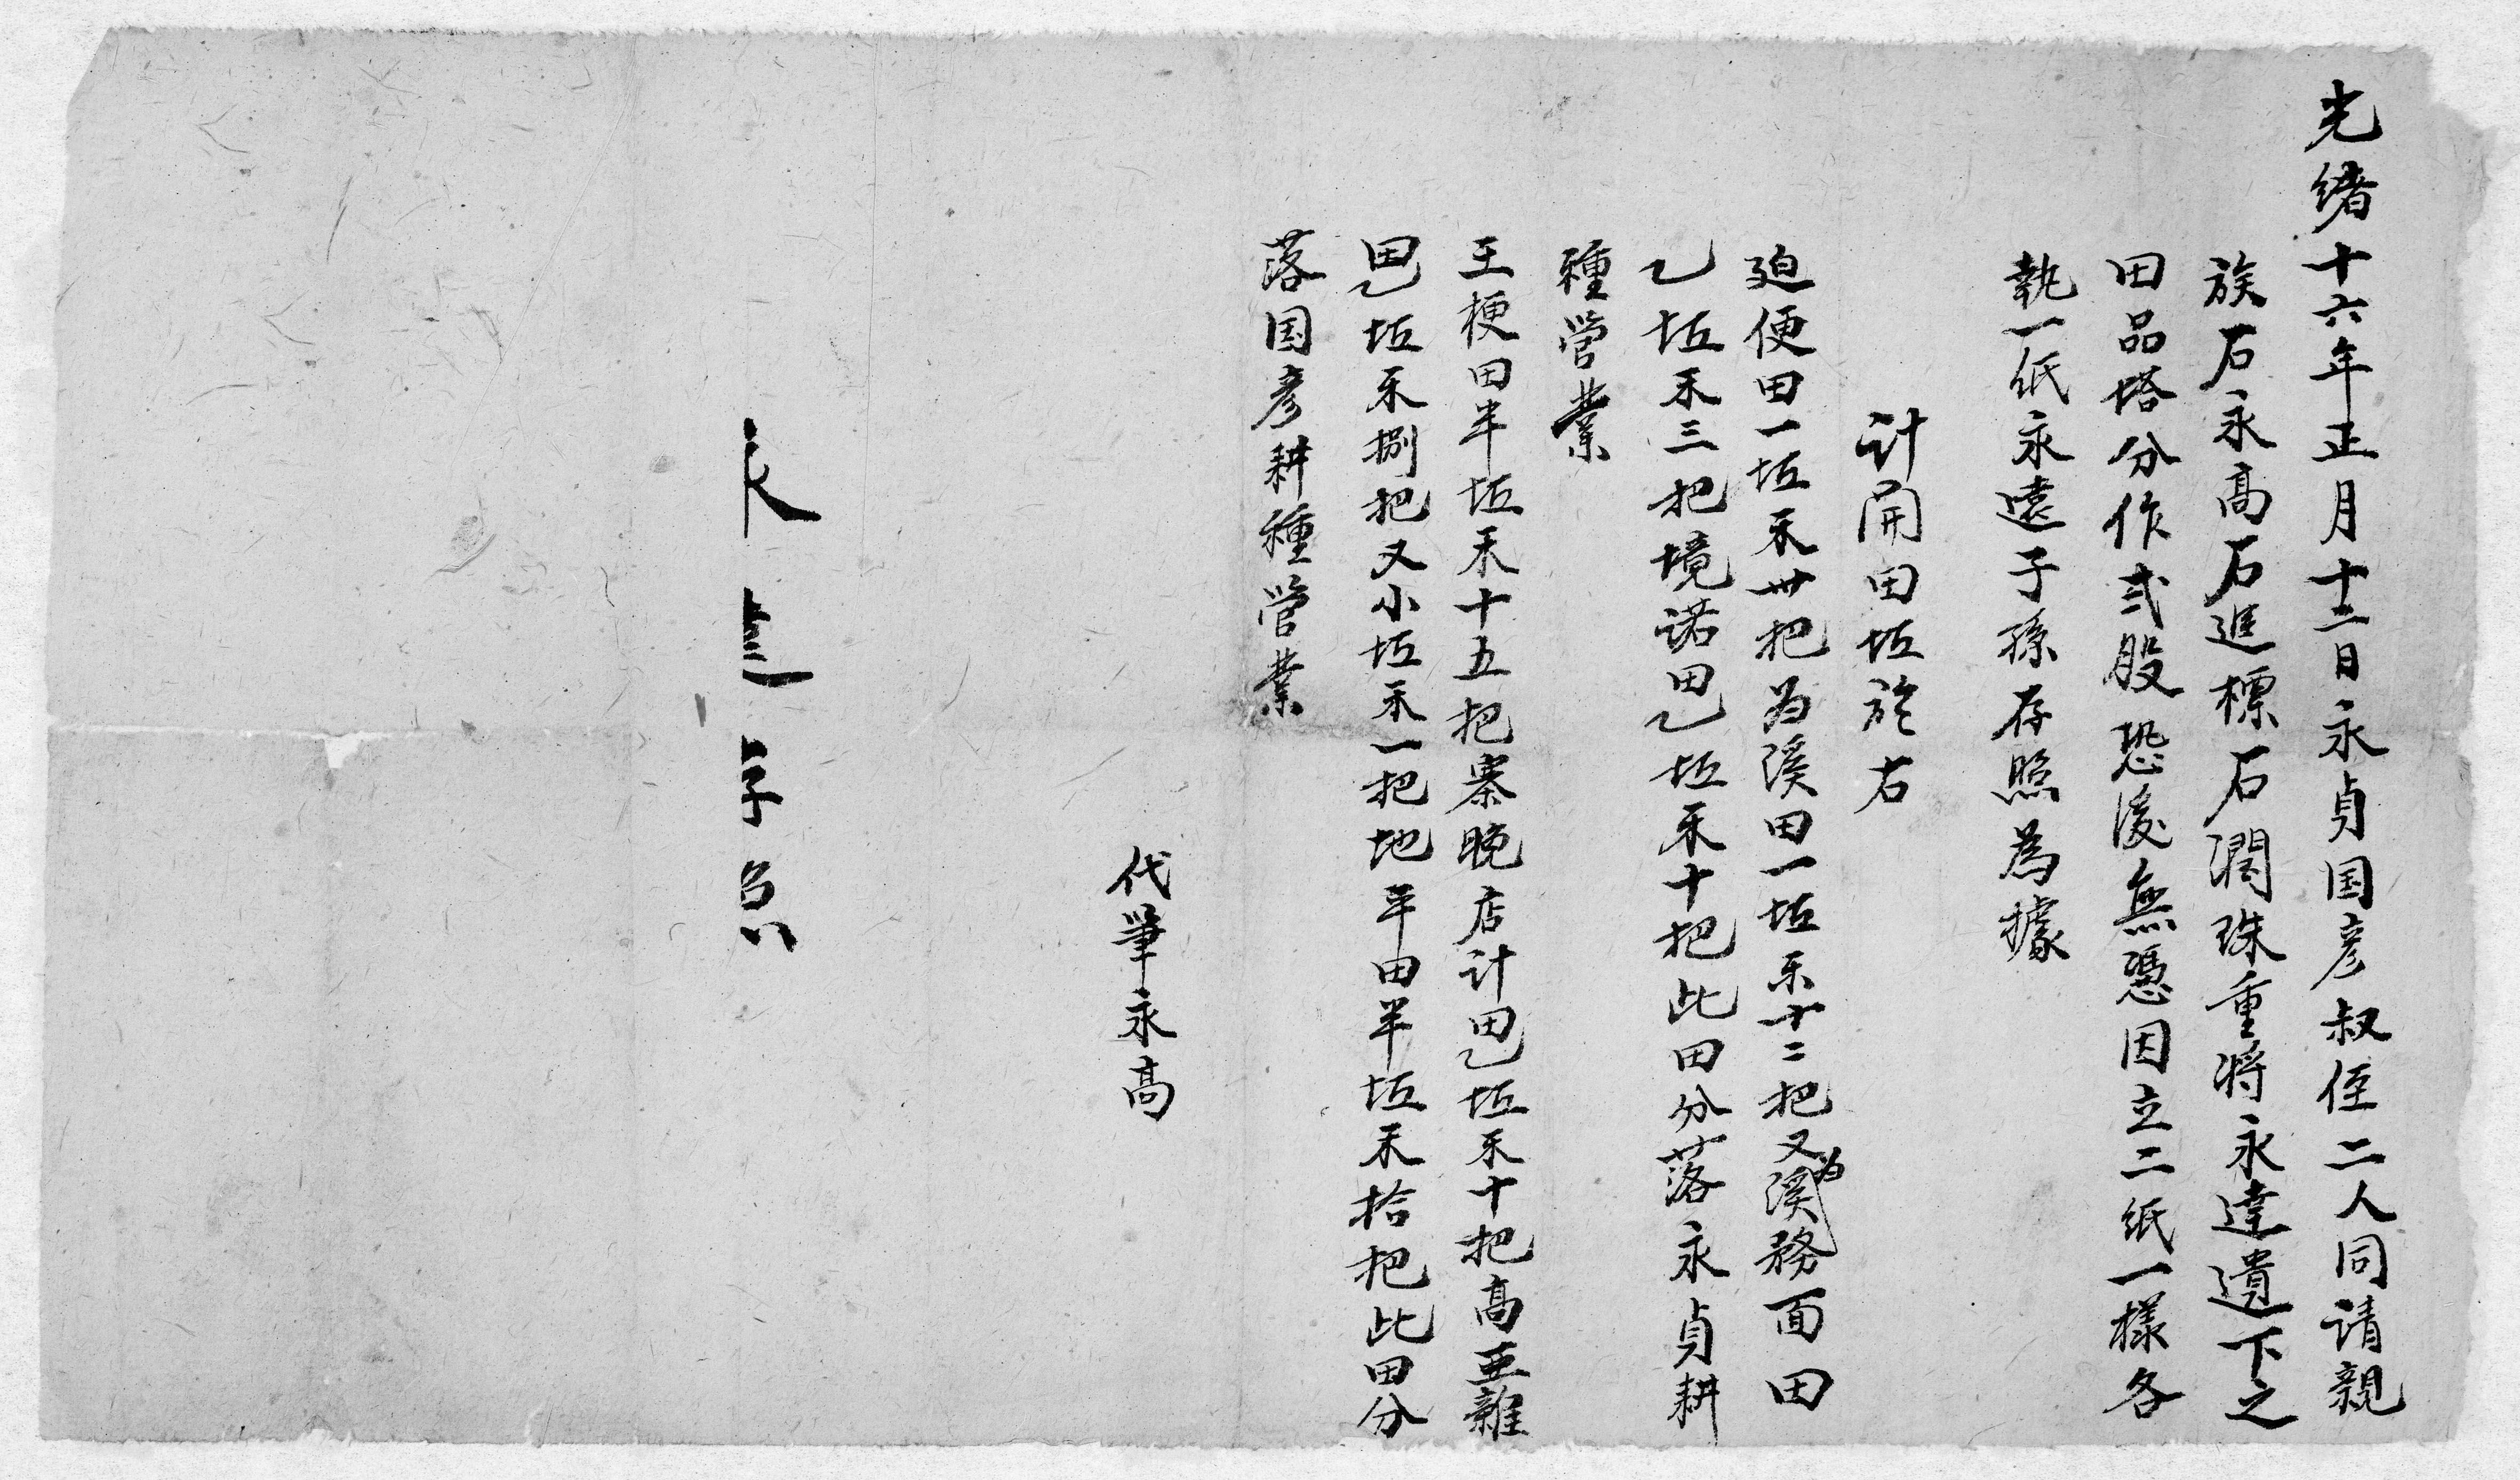 光緒十六年正月十二日永貞国彦叔侄二人同請親
族石永高石進標石潤珠重将永達遺下之
田品搭分作弍股恐後無憑因立二紙一樣各
執一紙永遠子孫存照為據
計開田坵於右
廹便田一坵禾卅把为溪田一坵禾十二把又为溪務面田
乙坵禾三把境諾田乙坵禾十把此田分落永貞耕
種营業
王梗田半坵禾十五把寨晚店計田乙坵禾十把高亚雜
田乙坵禾捌把又小坵禾一把地平田半坵禾拾把此田分
落国彦耕種营業
代筆永高